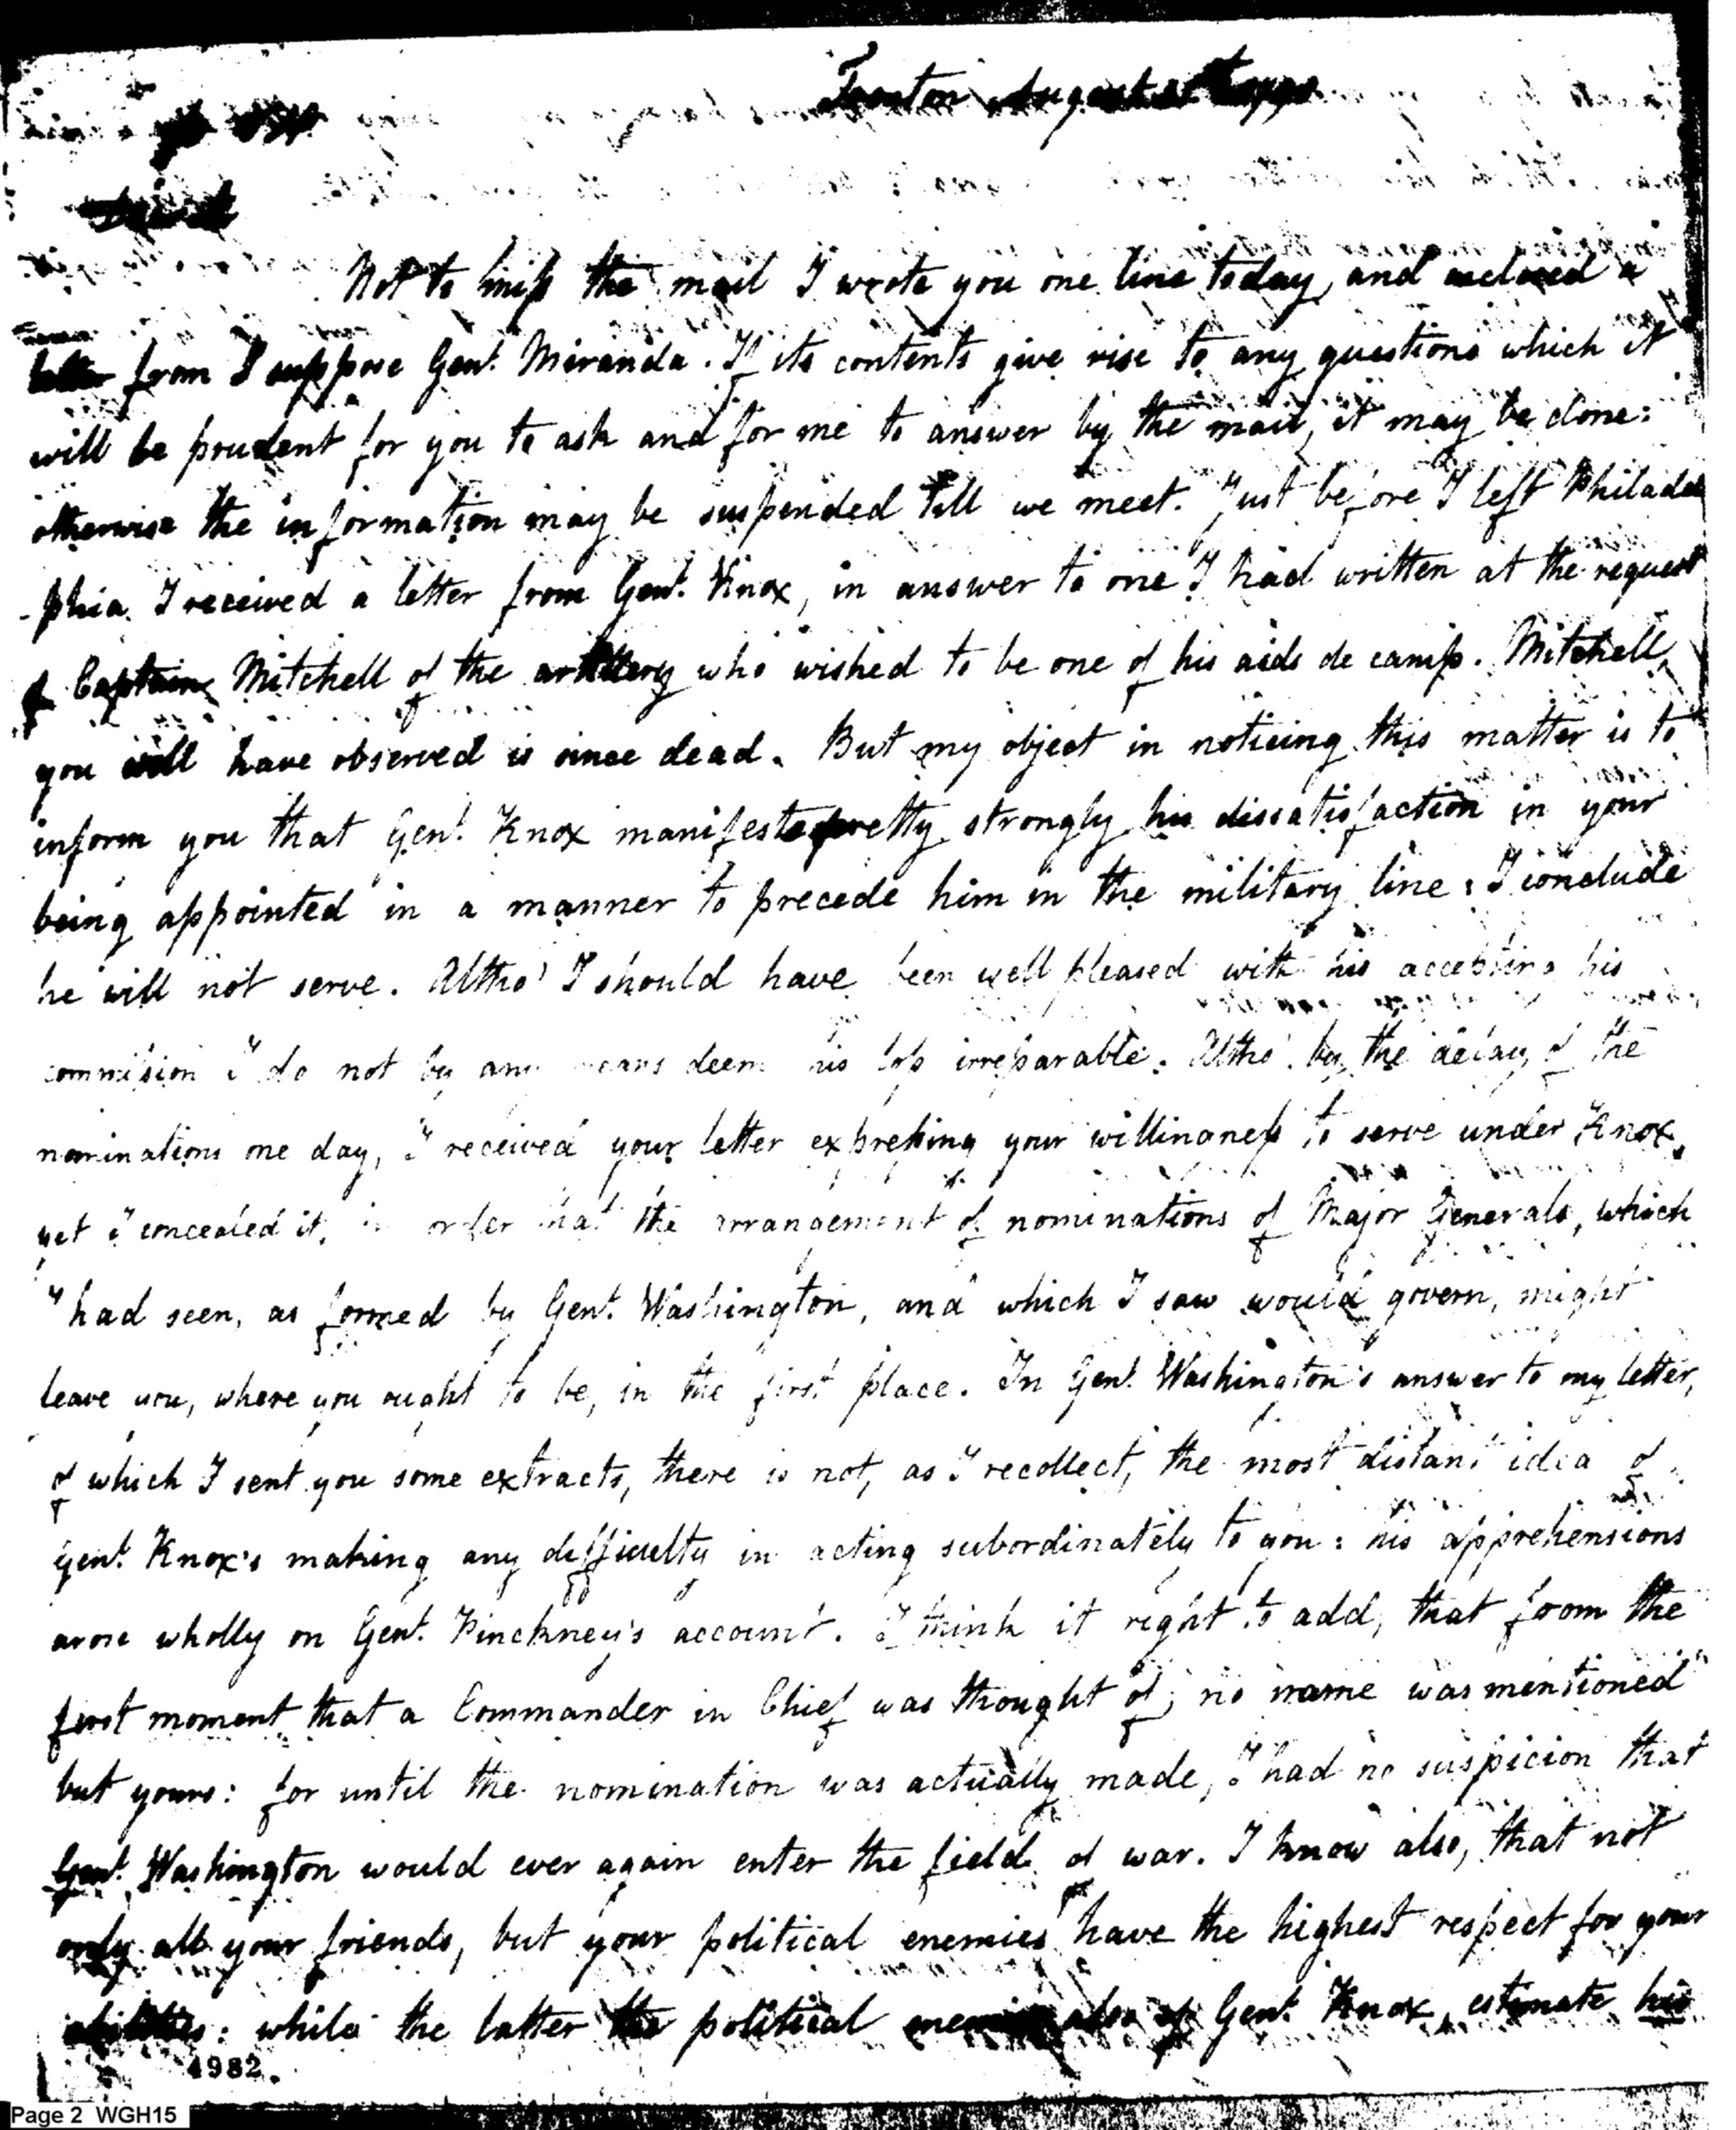 Trenton August
Not to miss the mail I wrote you one line today, and inclosed a
letter from I suppose Genl. Miranda. If its contents give rise to any questions which it
will be prudent for you to ask and for me to answer by the mail, it may be done:
otherwise the information may be suspended till we meet. Just before I left Philadel
-phia I received a letter from Genl. Knox, in answer to one I had written at the request
of Captain Mitchell of the artillery who wished to be one of his aids de camp. Mitchell,
you will have observed is since dead. But my object in noticing this matter is to
inform you that Genl. Knox manifests pretty strongly his dissatisfaction in your
being appointed in a manner to precede him in the military line: I conclude
he will not serve. Altho' I should have been well pleased with his accepting his
commission I do not by any means deem his loss irreparable. Altho' by the delay of the
nominations one day, I received your letter expressing your willingness to serve under Knox,
yet I concealed it, in order that the arrangement of nominations of Major Generals, which
I had seen, as formed by Genl. Washington, and which I saw would govern, might
leave you, where you ought to be, in the first place. In Genl. Washington's answer to my letter,
of which I sent you some extracts, there is not, as I recollect, the most distant idea of
Genl. Knox's making any difficulty in acting subordinately to you: his apprehensions
arose wholly on Genl. Pinckney's account. I think it right to add, that from the
first moment that a Commander in Chief was thought of, no name was mentioned
but yours: for until the nomination was actually made, I had no suspicion that
Genl. Washington would ever again enter the field of war. I know also, that not
only all your friends, but your political enemies have the highest respect for your
abilities: while the latter the political enemies also of Genl. Knox, estimate his
4982.
Page 2 WGH15